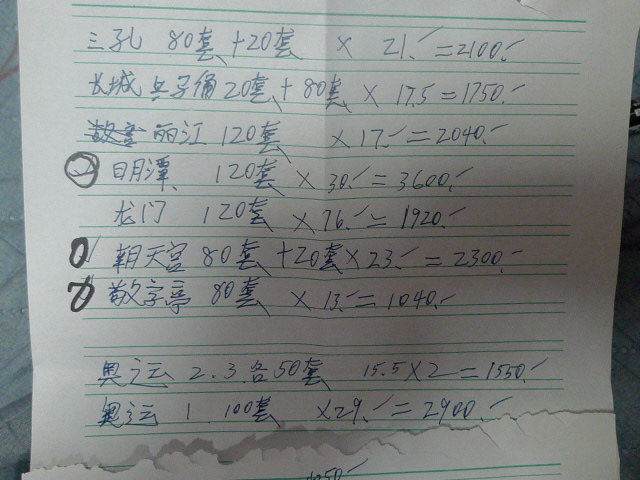 三孔 80套+20套 × 21.-=2100.-
长城 兵马俑20套+80套 × 17.5=1750.-
丽江 120套 ×17.-=2040.-
日月潭 120套 ×30.-=3600.-
龙门 120套 ×16.-=1920.-
朝天宫 80套+20套×23.-=2300.-
敬字亭 80套 ×13.-=1040.-
奥运 2.3.各50套 15.5×2=1550.-
奥运 1. 100套 ×29.-=2900.-